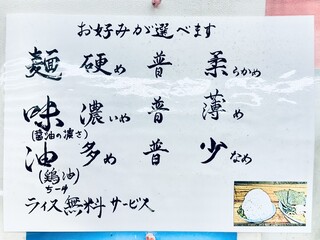 お好みが選べます
麺 硬め 普 柔らかめ
味 濃いめ 普 薄め
(醤油の濃さ)
油 多め 普 少なめ
(鶏油)
ちーゆ
ライス無料サービス